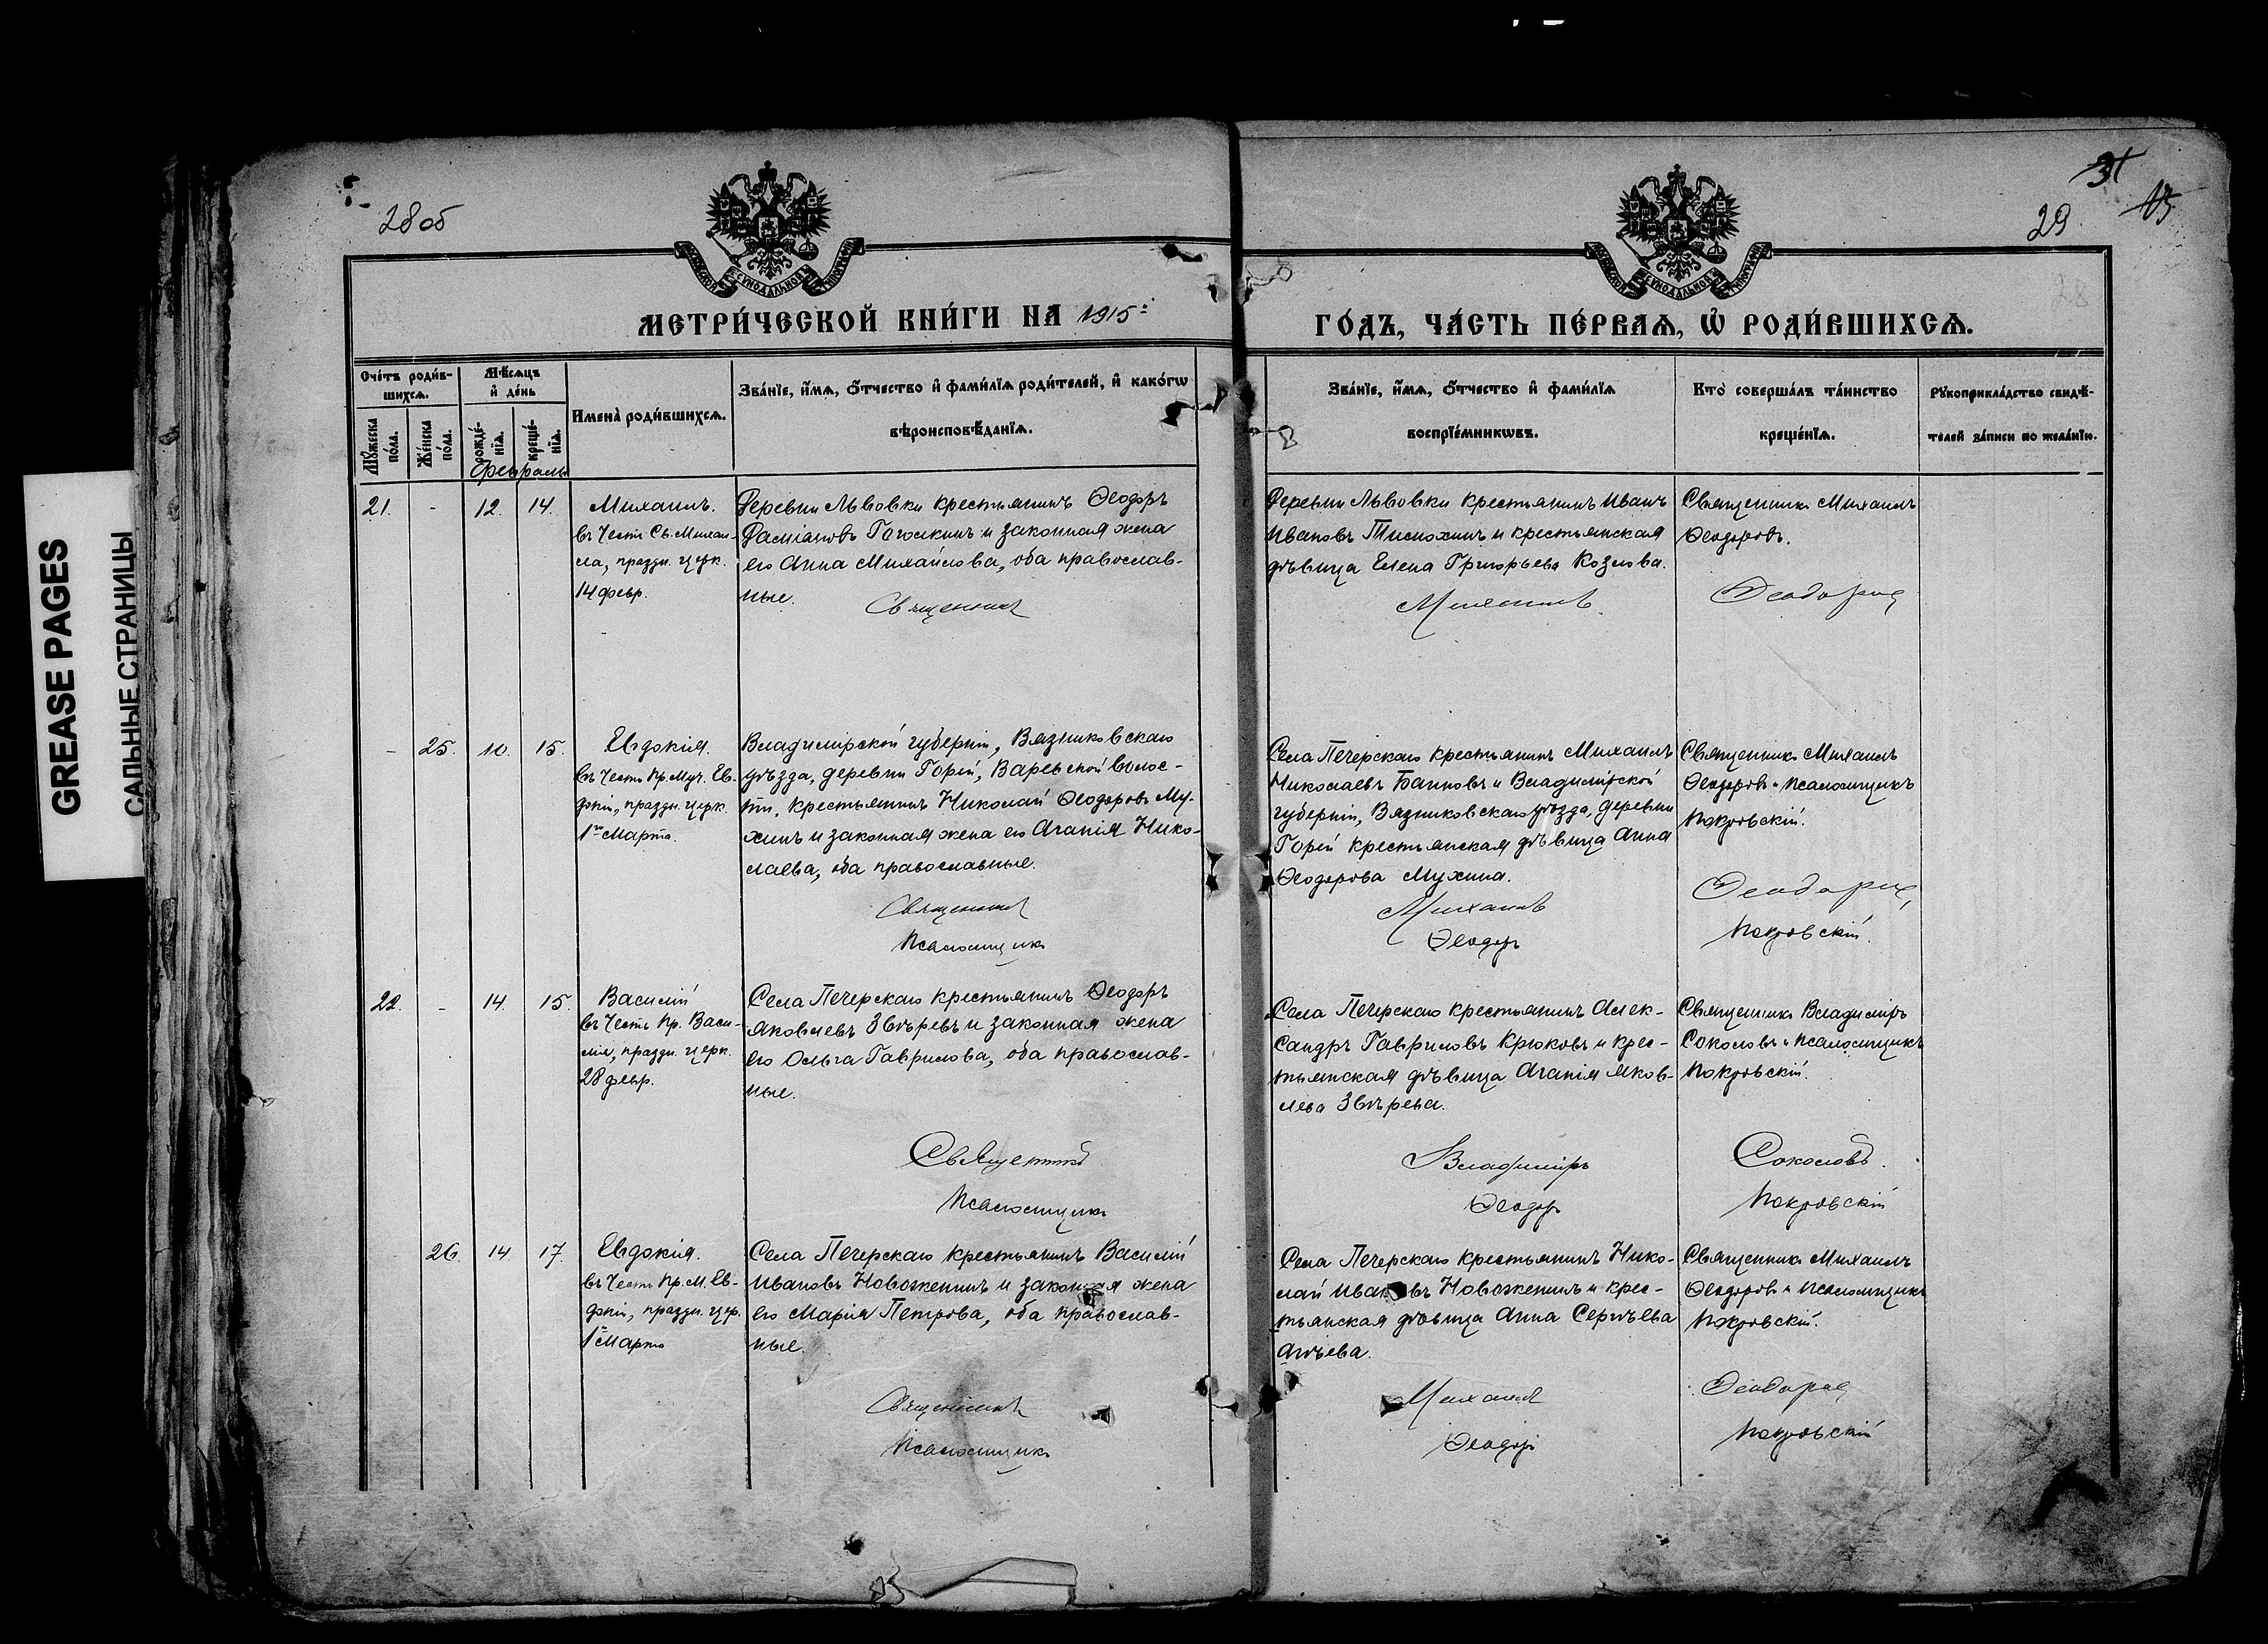 GREASE PAGES
САЛЬНЫЕ СТРАНИЦЫ
28об
31
29
МЕТРИ́ЧЕСКОЙ КНИ́ГИ НА 1915 й
ГО́ДЪ, ЧА́СТЬ ПЕ́РВАѦ, Ѽ РОДИ́ВШИХСѦ.
Сче́тъ роди́в-
шихсѧ.
Мꙋ́жеска по́ла.
Же́нска по́ла.
Мѣ́сѧцъ
и҆ де́нь
рожде́-
нїѧ.
креще́-
нїѧ.
И҆мена̀ роди́вшихсѧ.
Зва́нїе, и҆́мѧ, ѻ҆́тчество и҆ фами́лїѧ роди́телей, и҆ како́гѡ
вѣроисповѣ́данїѧ.
Зва́нїе, и҆́мѧ, ѻ҆́тчество и҆ фами́лїѧ
воспрїе́мникѡвъ.
Кто̀ соверша́лъ та́инство
креще́нїѧ.
Рꙋкоприкла́дство свидѣ́-
телей за́писи по жела́нїю.
Февраль
21. - 12. 14.
Михаилъ.
въ честь Св. Михаи-
ла, праздн. церк.
14 февр.
Деревни Львовки крестьянинъ Ѳеодоръ
Даміановъ Гоголкинъ и законная жена
его Анна Михайлова, оба православ-
ные.
Священникъ
Деревни Львовки крестьянинъ Иванъ
Ивановъ Тимохинъ и крестьянская
дѣвица Елена Григорьева Козлова.
Михаилъ
Священникъ Михаилъ
Ѳеодоровъ.
Ѳеодоровъ
- 25. 10. 15.
Евдокія.
въ честь Пр. Муч. Ев-
докіи, праздн. церк.
1го Марта.
Владимірской губерніи, Вязниковскаго
уѣзда, деревни Горей, Варевской волос-
ти, крестьянинъ Николай Ѳеодоровъ Му-
хинъ и законная жена его Агапія Нико-
лаева, оба православные.
Священникъ
Псаломщикъ
Села Печерскаго крестьянинъ Михаилъ
Николаевъ Баиновъ и Владимірской
губерніи, Вязниковскаго уѣзда, деревни
Горей крестьянская дѣвица Анна
Ѳеодорова Мухина.
Михаилъ
Ѳеодоръ
Священникъ Михаилъ
Ѳеодоровъ и Псаломщикъ
Покровскій.
Ѳеодоровъ
Покровскій.
22. - 14. 15.
Василій
въ честь Пр. Васи-
лія, праздн. церк.
28 февр.
Села Печерскаго крестьянинъ Ѳеодоръ
Яковлевъ Звѣревъ и законная жена
его Ольга Гаврилова, оба православ-
ные.
Священникъ
Псаломщикъ
Села Печерскаго крестьянинъ Алек-
сандръ Гавриловъ Крюковъ и крес-
тьянская дѣвица Агапія Яков-
лева Звѣрева.
Владиміръ
Ѳеодоръ
Священникъ Владиміръ
Соколовъ и Псаломщикъ
Покровскій.
Соколовъ.
Покровскій
26. 14. 17.
Евдокія.
въ честь Пр. М. Ев-
докіи, праздн. цер.
1го Марта
Села Печерскаго крестьянинъ Василій
Ивановъ Новоженинъ и законная жена
его Марія Петрова, оба православ-
ные.
Священникъ
Псаломщикъ
Села Печерскаго крестьянинъ Нико-
лай Ивановъ Новоженинъ и крес-
тьянская дѣвица Анна Сергѣева
Агѣева.
Михаилъ
Ѳеодоръ
Священникъ Михаилъ
Ѳеодоровъ и Псаломщикъ
Покровскій.
Ѳеодоровъ
Покровскій